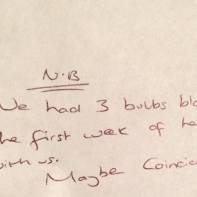 N.B
We had 3 bulbs blo
the first week of he
with us.
Maybe Coincid